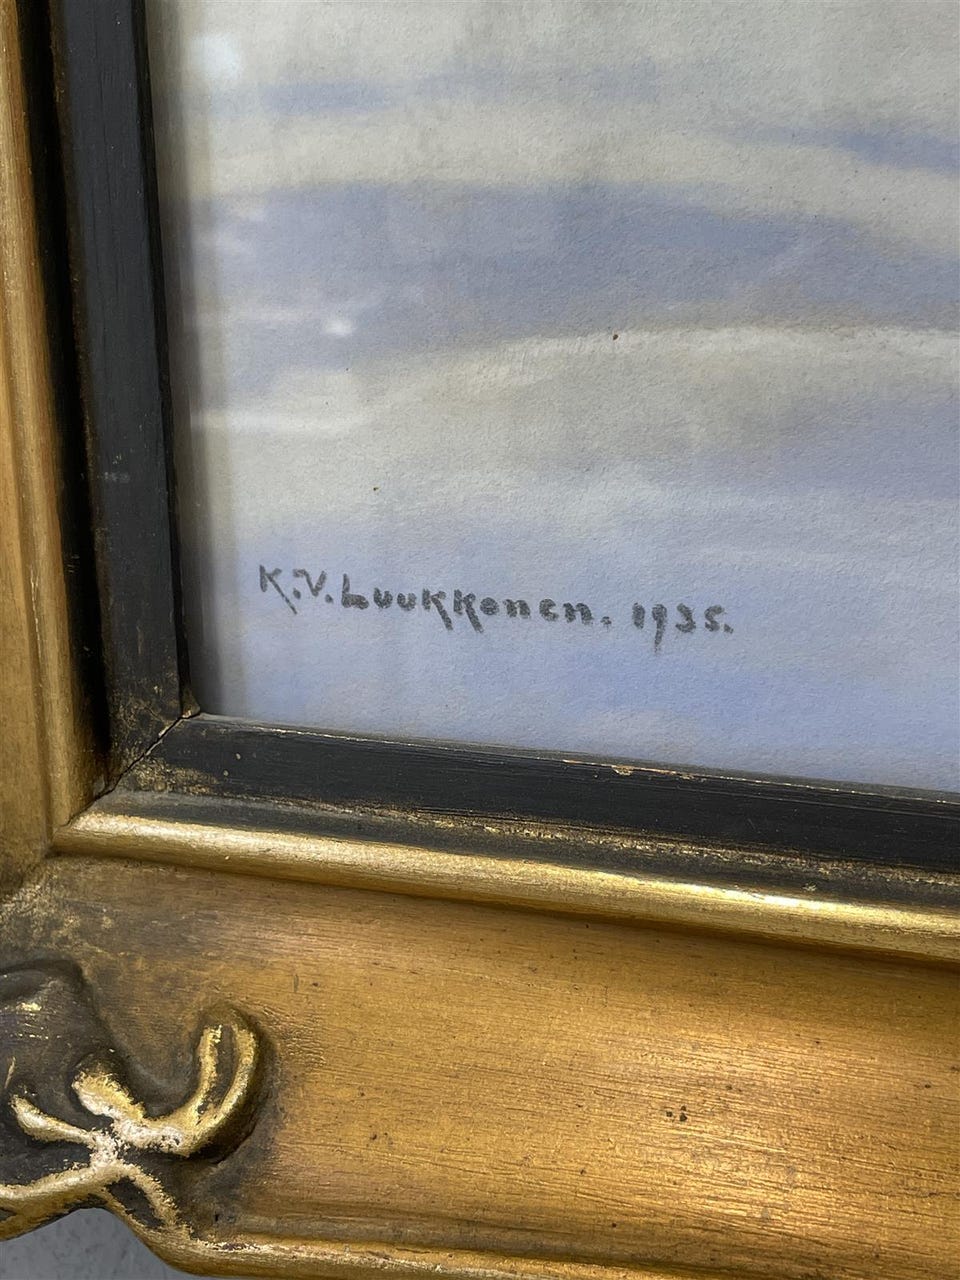 K.V. Luukkonen. 1935.